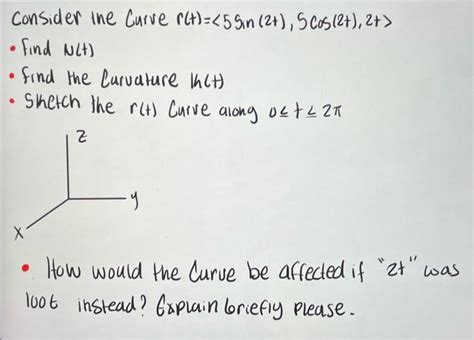 Consider the Curve r(t)=<5Sin(2t), 5cos(2t), 2t>
• Find N(t)
• find the Curvature k(t)
• Sketch the r(t) Curve along 0≤t≤2π
z
y
x
• How would the Curve be affected if "2t" was
100t instead? Explain briefly please.